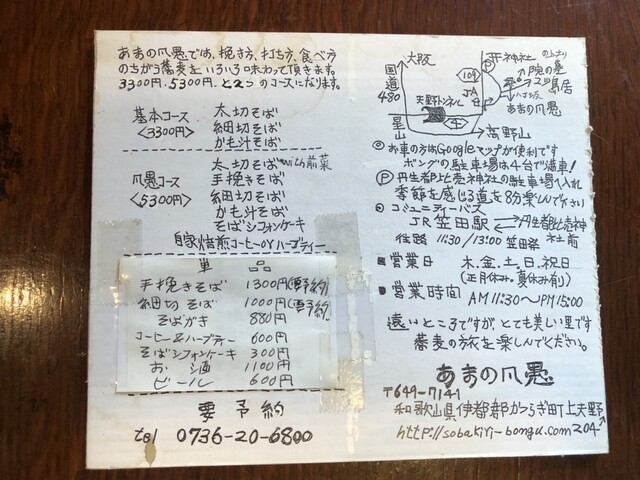 あまの凡愚では、挽き方、打ち方、食べ方
のちがう蕎麦をいろいろ味わって頂きます。
3300円、5300円、と2つのコースになります。
基本コース
<3300円>
太切そば
細切そば
かも汁そば
凡愚コース
<5300円>
太切そば with前菜
手挽きそば
細切そば
かも汁そば
そばシフォンケーキ
自家焙煎コーヒーorハーブティー
単品
手挽きそば 1300円(要予約)
細切そば 1000円(要予約)
そばがき 880円
コーヒー&ハーブティー 600円
そばシフォンケーキ 300円
お酒 1100円
ビール 600円
要予約
tel 0736-20-6800
大阪
国道480
天野トンネル
109
JA
4
高野山
神社
鳥居
あまの凡愚
お車の方はGoogleマップが便利です
ボングの駐車場は4台で満車!
P 丹生都比売神社の駐車場へ入れ
季節を感じる道を8分楽しんで下さい
コミュニティーバス
JR笠田駅 丹生都比売神社前
往路 11:30/13:00 笠田発
営業日 木、金、土、日、祝日
(正月休み、夏休み有)
営業時間 AM11:30~PM15:00
遠いところですがとても美しい里です
蕎麦の旅を楽しんでください。
あまの凡愚
〒649-7141
和歌山県伊都郡かつらぎ町上天野
204
http://sobakiri-bongu.com